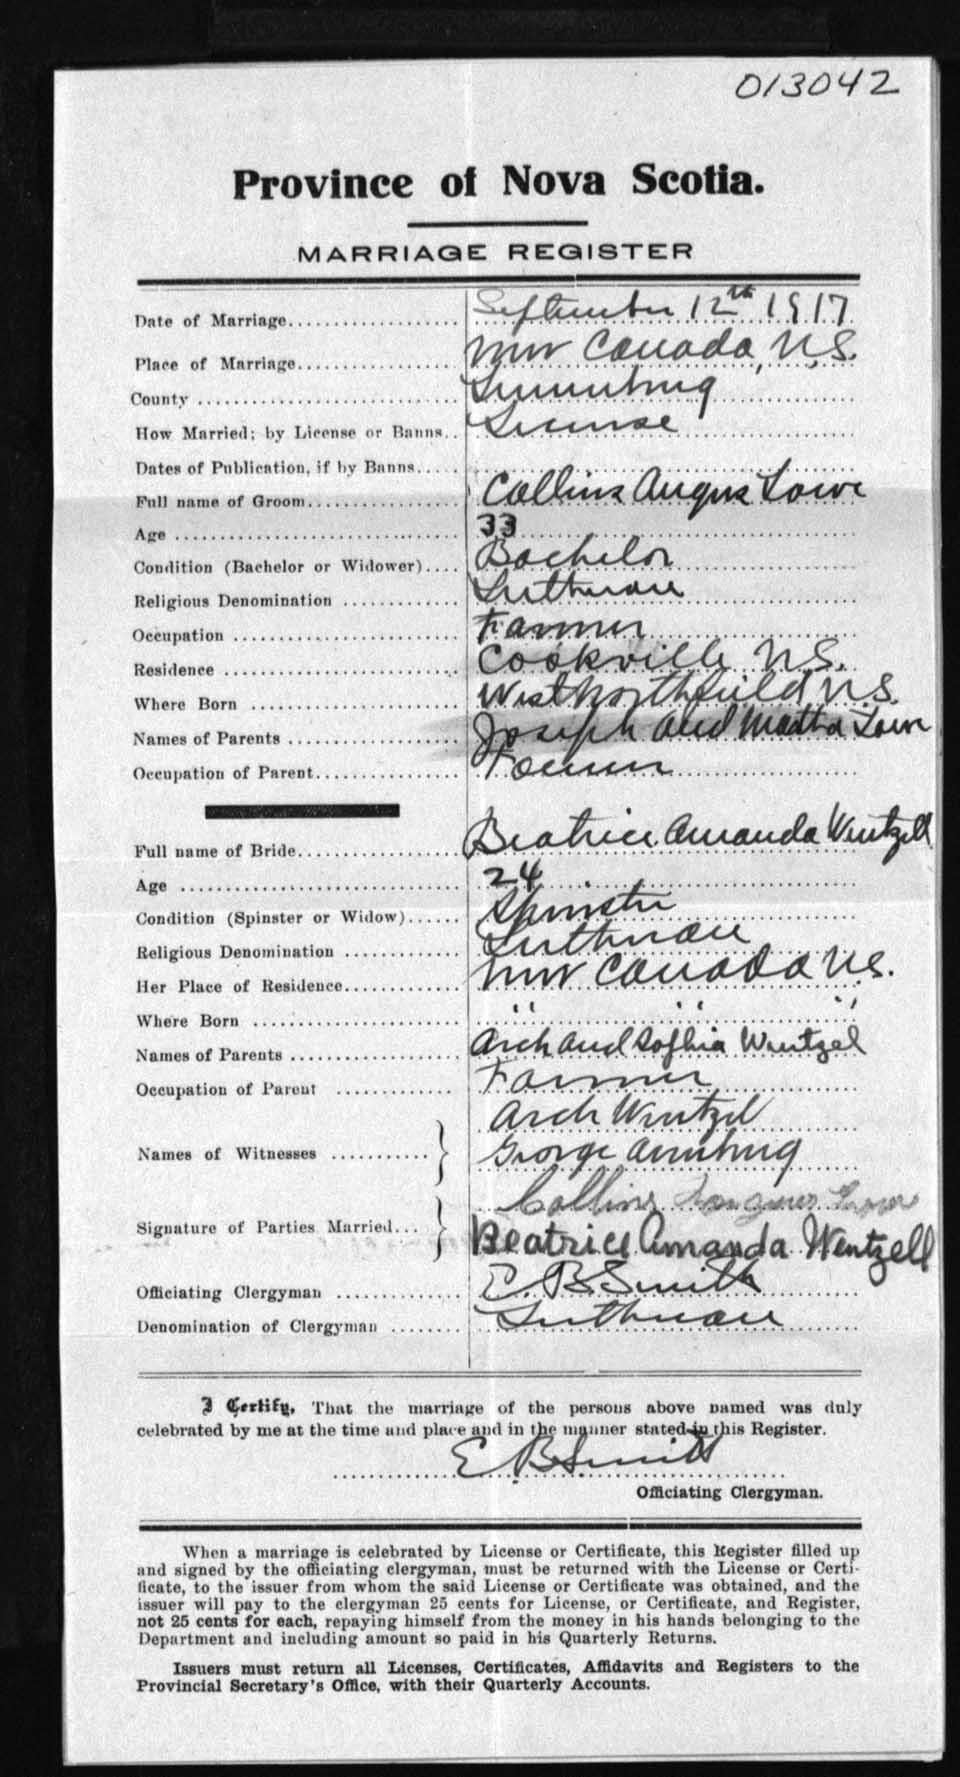 013042
Province of Nova Scotia.
MARRIAGE REGISTER
Date of Marriage September 12th 1917
Place of Marriage New Canada, N.S.
County Lunenburg
How Married; by License or Banns License
Dates of Publication, if by Banns
Full name of Groom Collins Angus Lowe
Age 33
Condition (Bachelor or Widower) Bachelor
Religious Denomination Lutheran
Occupation Farmer
Residence Cookville N.S.
Where Born West Northfield N.S.
Names of Parents Joseph and Martha Lowe
Occupation of Parent Farmer
Full name of Bride Beatrice Amanda Wentzell
Age 24
Condition (Spinster or Widow) Spinster
Religious Denomination Lutheran
Her Place of Residence New Canada N.S.
Where Born " " "
Names of Parents Arch and Sophia Wentzel
Occupation of Parent Farmer
Arch Wentzel
Names of Witnesses George Arenburg
Collins Angus Lowe
Signature of Parties Married Beatrice Amanda Wentzell
Officiating Clergyman E. B. Smith
Denomination of Clergyman Lutheran
I Certify, That the marriage of the persons above named was duly
celebrated by me at the time and place and in the manner stated in this Register.
E B Smith
Officiating Clergyman.
When a marriage is celebrated by License or Certificate, this Register filled up
and signed by the officiating clergyman, must be returned with the License or Certi-
ficate, to the issuer from whom the said License or Certificate was obtained, and the
issuer will pay to the clergyman 25 cents for License, or Certificate, and Register,
not 25 cents for each, repaying himself from the money in his hands belonging to the
Department and including amount so paid in his Quarterly Returns.
Issuers must return all Licenses, Certificates, Affidavits and Registers to the
Provincial Secretary's Office, with their Quarterly Accounts.